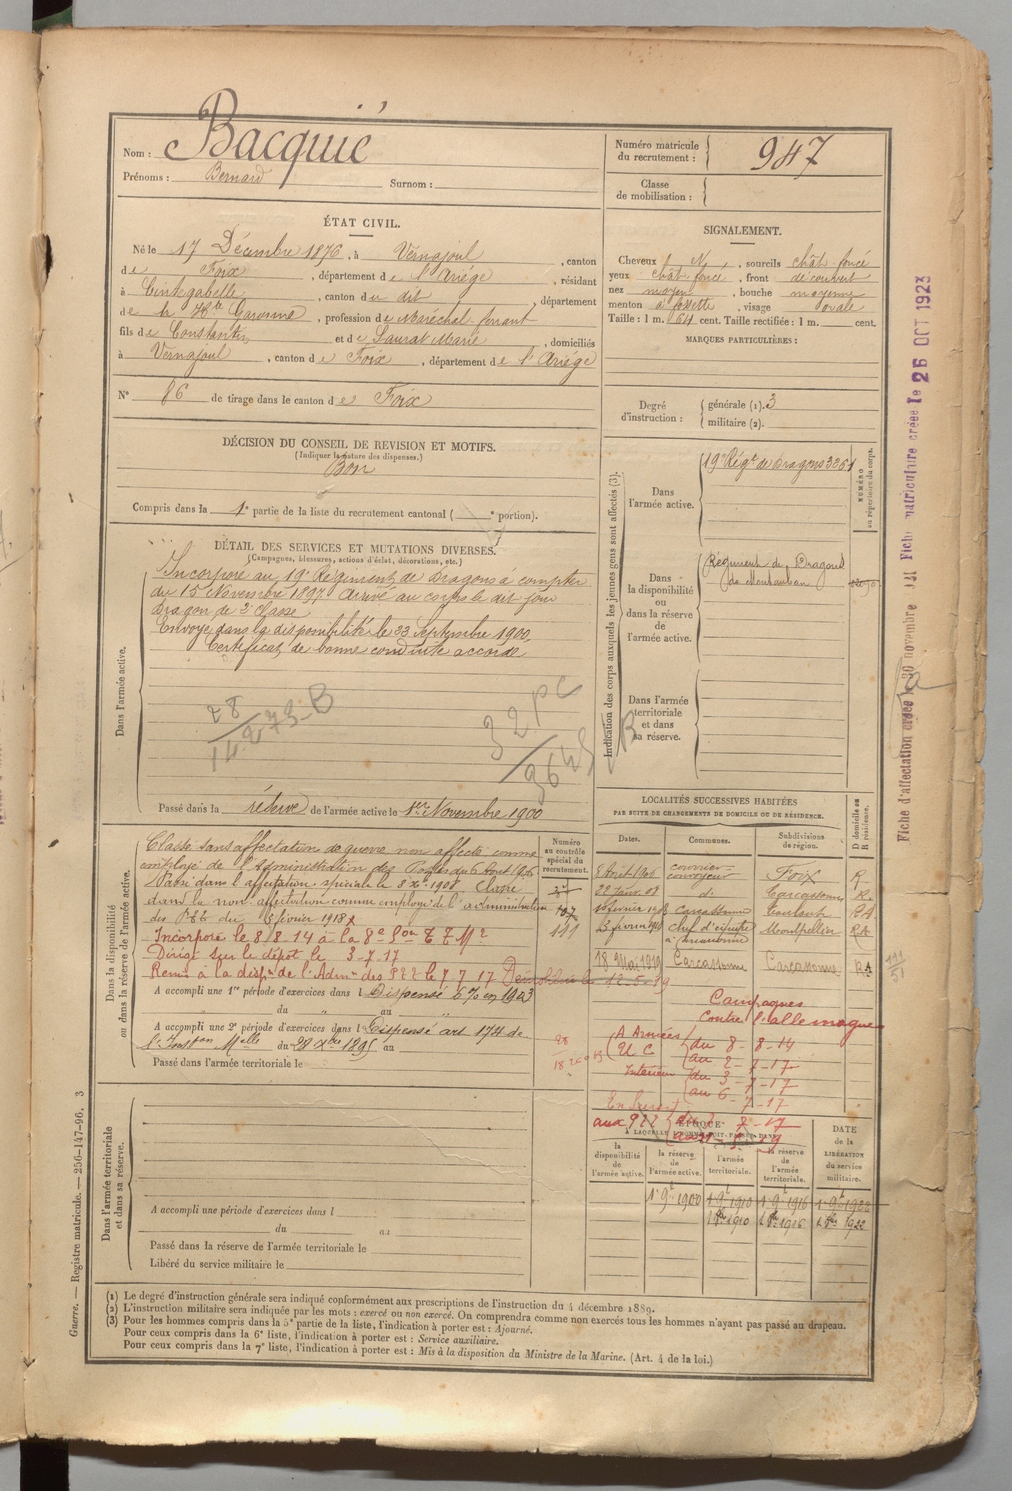 Nom : Bacquié
Prénoms : Bernard Surnom :
Numéro matricule du recrutement : 947
Classe de mobilisation :
ÉTAT CIVIL.
Né le 17 Décembre 1876, à Vernajoul, canton
de Foix, département de l'Ariége, résidant
à Cintegabelle, canton du dit, département
de la Hte Garonne, profession de Maréchal-ferrant
fils de Constantin et de Laurat Marie, domiciliés
à Vernajoul, canton de Foix, département de l'Ariége
N° 86 de tirage dans le canton de Foix
SIGNALEMENT.
Cheveux N, sourcils chât. foncé
yeux chât foncé, front découvert
nez moyen, bouche moyenne
menton à fossette, visage ovale
Taille : 1 m. 64 cent. Taille rectifiée : 1 m. cent.
MARQUES PARTICULIÈRES :
Degré d'instruction : générale (1). 3
militaire (2).
DÉCISION DU CONSEIL DE REVISION ET MOTIFS.
(Indiquer la nature des dispenses.)
Bon
Compris dans la 1e partie de la liste du recrutement cantonal ( e portion).
DÉTAIL DES SERVICES ET MUTATIONS DIVERSES.
(Campagnes, blessures, actions d'éclat, décorations, etc.)
Dans l'armée active.
Incorporé au 19e Régiment de dragons à compter
du 15 Novembre 1897. Arrivé au corps le dit jour
dragon de 2e classe
Envoyé dans la disponibilité le 23 Septembre 1900.
Certificat de bonne conduite accordé
Passé dans la réserve de l'armée active le 1er Novembre 1900
Indication des corps auxquels les jeunes gens sont affectés (3).
Dans l'armée active.
19e Régt de dragons 3261
NUMÉRO au répertoire du corps.
Dans la disponibilité ou dans la réserve de l'armée active.
Régiment de Dragons
de Montauban
Dans l'armée territoriale et dans sa réserve.
LOCALITÉS SUCCESSIVES HABITÉES
PAR SUITE DE CHANGEMENTS DE DOMICILE OU DE RÉSIDENCE.
Dates. Communes. Subdivisions de région. D domicile ou R résidence.
Foix R
22 Janv. 08 do Carcassonne R.
Carcassonne Toulouse
chef d'équipe Montpellier
18 Mai 1919 Carcassonne Carcassonne
Dans la disponibilité ou dans la réserve de l'armée active.
Numéro au contrôle spécial du recrutement.
Classé sans affectation de guerre, non affecté, comme
employé de l'Administration des Postes du 6 Août 1906
Passé dans l'affectation spéciale le 8 Xbre 1908 Classé
dans la non-affectation comme employé de l'administration
des P.T.T. du février 1918
111
Incorporé le 8/8-14 à la 8e
Dirigé sur le dépôt le 3-7-17
Remis à la dispon de l'Admon des P T T le 7 7 17
A accompli une 1re période d'exercices dans l Dispensé en 1903
du au
A accompli une 2e période d'exercices dans l Dispensé art 174 de
l'Inston Melle du 28 Xbre 1895 au
Passé dans l'armée territoriale le
Campagnes
contre l'allemagne
A Armées du 8-8-14
au 2-7-17
Intérieur du 3-7-17
au 6-7-17
Dans l'armée territoriale et dans sa réserve.
A accompli une période d'exercices dans l
du au
Passé dans la réserve de l'armée territoriale le
Libéré du service militaire le
ÉPOQUE
À LAQUELLE L'HOMME DOIT PASSER DANS
la disponibilité de l'armée active. la réserve de l'armée active. l'armée territoriale. la réserve de l'armée territoriale.
DATE de la LIBÉRATION du service militaire.
1 9e 1900 1 9e 1910 1 9e 1916 1 9e 1922
1910 1916 1922
(1) Le degré d'instruction générale sera indiqué conformément aux prescriptions de l'instruction du 4 décembre 1889.
(2) L'instruction militaire sera indiquée par les mots : exercé ou non exercé. On comprendra comme non exercés tous les hommes n'ayant pas passé au drapeau.
(3) Pour les hommes compris dans la 5e partie de la liste, l'indication à porter est : Ajourné.
Pour ceux compris dans la 6e liste, l'indication à porter est : Service auxiliaire.
Pour ceux compris dans la 7e liste, l'indication à porter est : Mis à la disposition du Ministre de la Marine. (Art. 4 de la loi.)
Guerre. — Registre matricule. — 256-147-96. 3
Fiche d'affectation créée le 30 novembre Fiche matriculaire créée le 26 OCT 1923